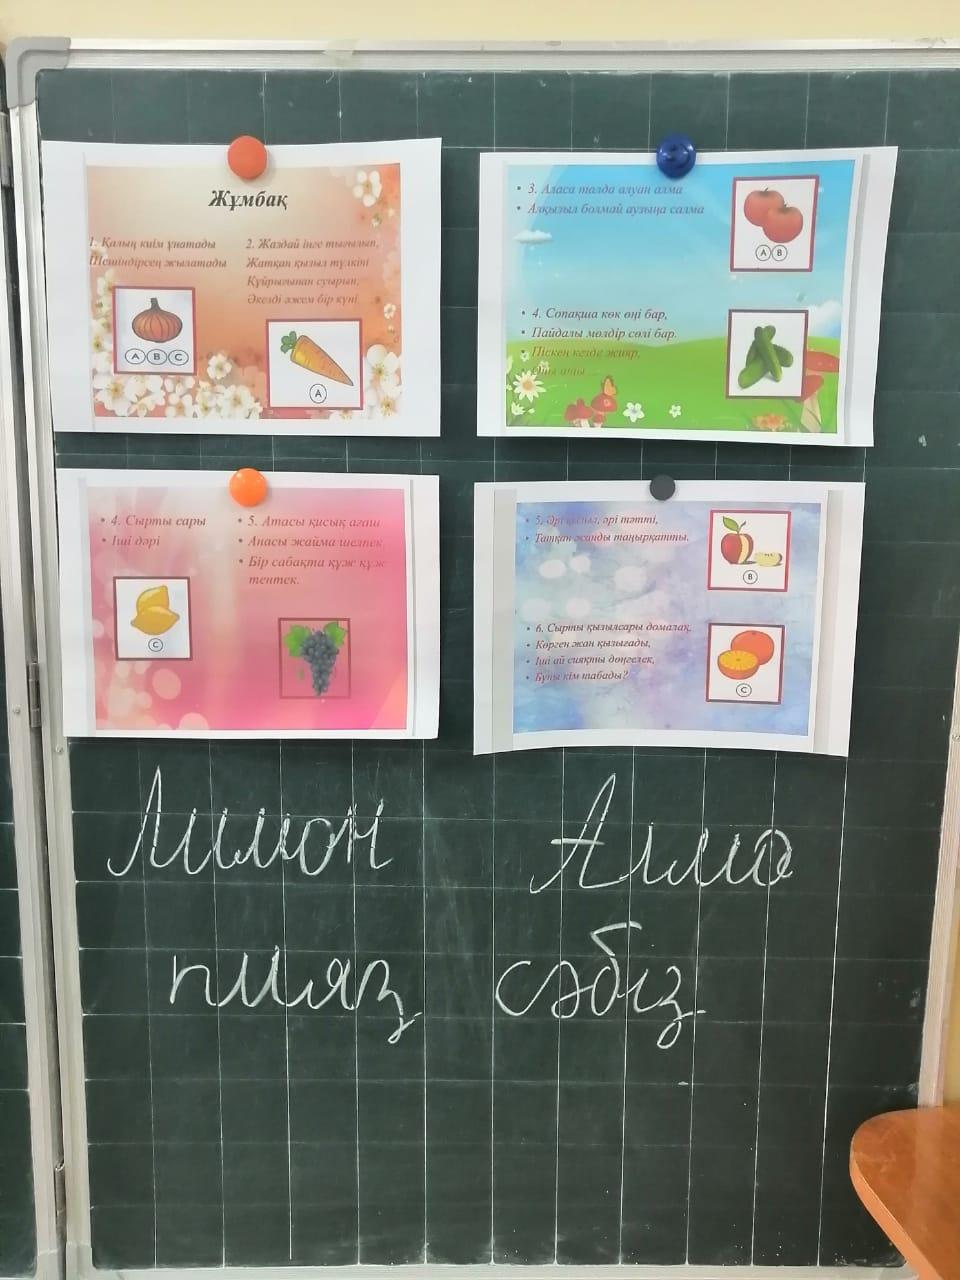 Жұмбақ
1. Қалың киім ұнатады
Шешіндірсең жылатады
А В С
2. Жаздай інге тығылып,
Жатқан қызыл түлкіні
Құйрығынан суырып,
Әкелді әжем бір күні
А
• 3. Аласа талда алуан алма
• Алқызыл болмай аузыңа салма
А В
• 4. Сопақша көк өңі бар,
• Пайдалы мөлдір сөлі бар.
• Піскен кезде жияр,
• 4. Сырты сары
• Іші дәрі
С
• 5. Атасы қисық ағаш
• Анасы жайма шелпек,
• Бір сабақта құж құж
тентек.
• 5. Әрі қызыл, әрі тәтті,
• Татқан жанды таңырқатты.
В
• 6. Сырты қызылсары домалақ,
• Көрген жан қызығады,
• Іші ай сияқты дөңгелек,
• Бұны кім табады?
С
Лимон Алма
пияз сәбіз